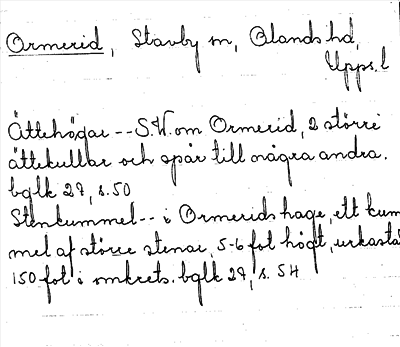 Ormerid, Stavby sn, Olands hd,
Upps. l
Ättehögar -- S.V. om Ormerid, 2 större
ättekullar och spår till några andra.
bglk 29, s. 50
Stenkummel -- i Ormerids hage, ett kum
mel af större stenar, 5-6 fot högt,
150 fot i omkrets. bglk 29, s. 54